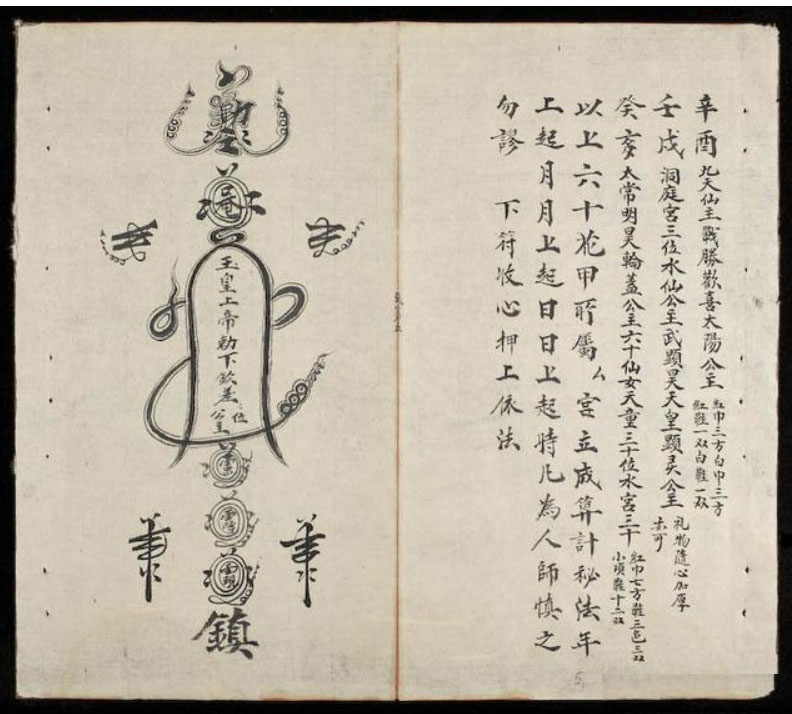 辛酉 九天仙主戰勝歡喜太陽公主 紅巾三方白巾三方
紅鞋一双白鞋一双
壬戌 洞庭宮三位水仙公主武顕昊天皇顕灵公主 礼物隨心加厚
亦可
癸亥 太常明昊輪蓋公主六十仙女天童三十位水宮三十 紅巾七方鞋三色三双
小項鞋十二双
以上六十花甲所屬厶宮立成算計秘法年
上起月月上起日日上起時凡為人師慎之
勿謬 下符收心押上依法
勅
唵
玉皇上帝勅下欽差
位
公主
鎮